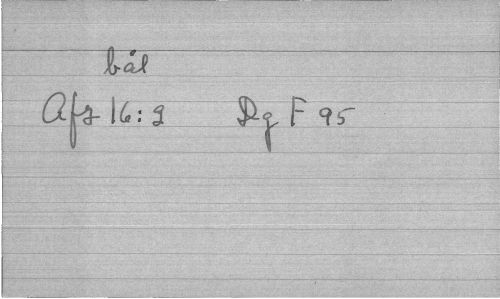 bål
Afz 16:2 Dg F 95